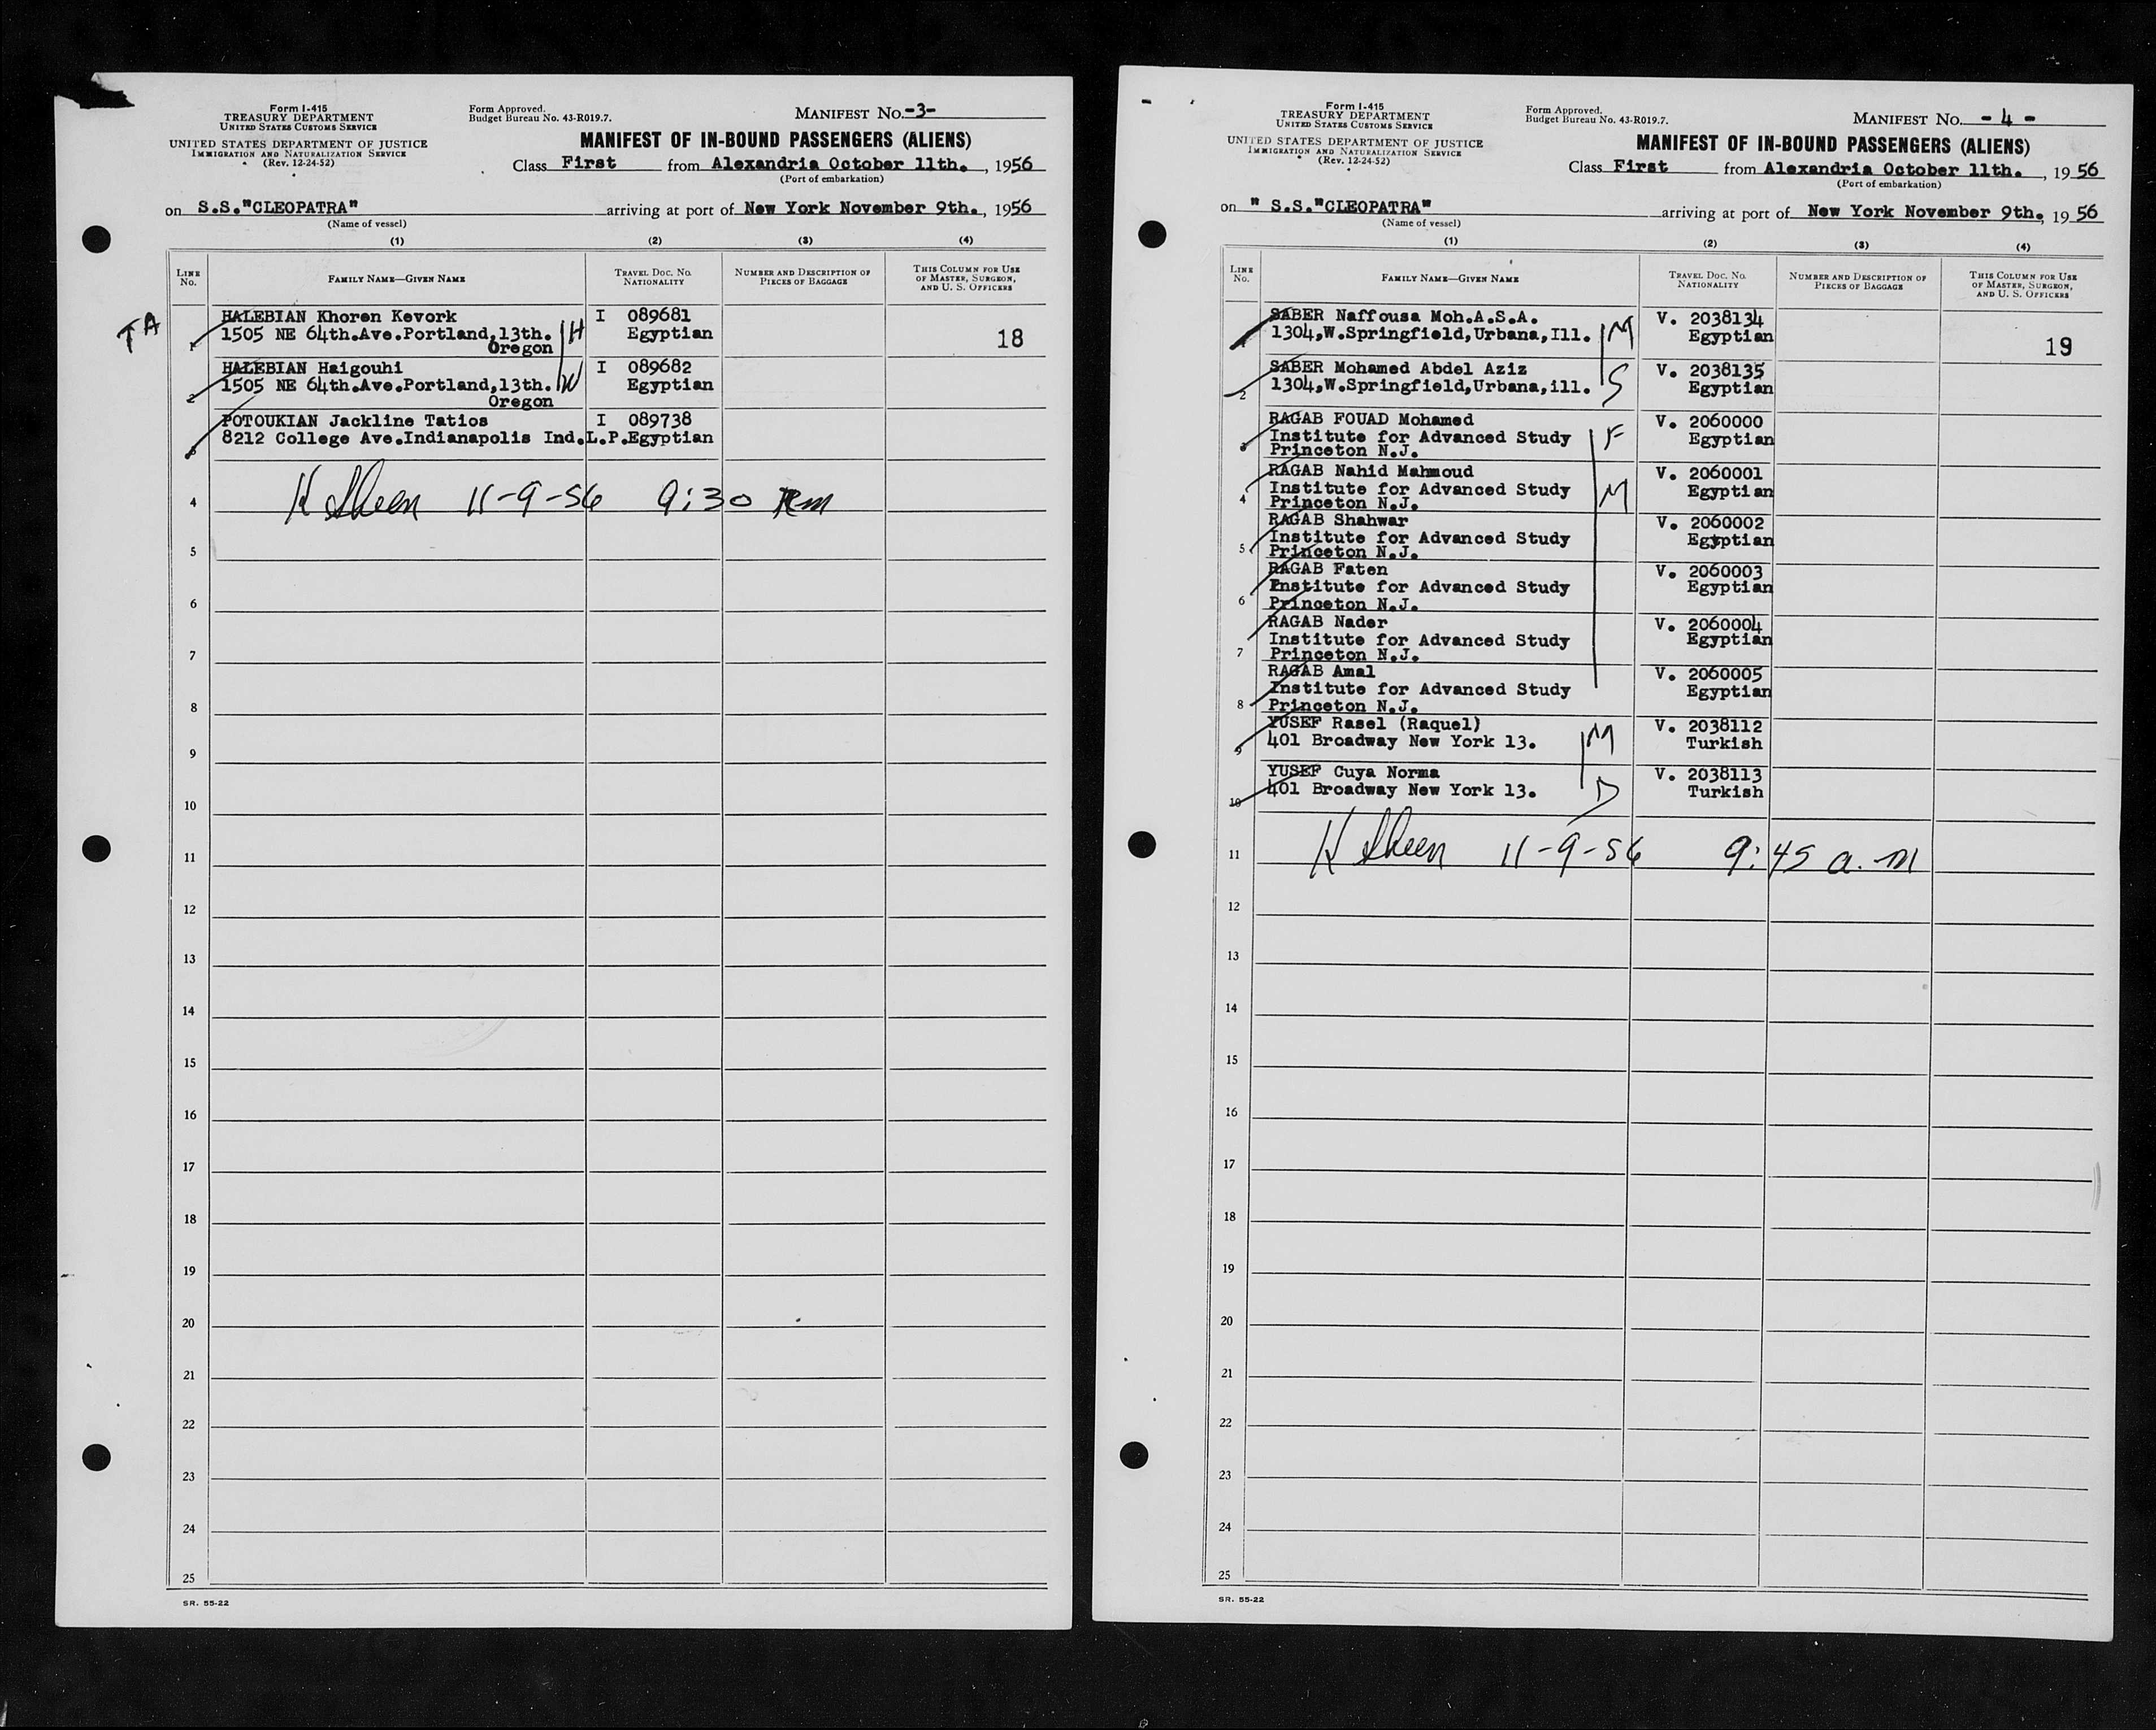 Form I-415
TREASURY DEPARTMENT
UNITED STATES CUSTOMS SERVICE
UNITED STATES DEPARTMENT OF JUSTICE
IMMIGRATION AND NATURALIZATION SERVICE
(Rev. 12-24-52)
Form Approved.
Budget Bureau No. 43-R019.7.
MANIFEST No. -3-
MANIFEST OF IN-BOUND PASSENGERS (ALIENS)
Class First from Alexandria October 11th. , 1956
(Port of embarkation)
on S.S."CLEOPATRA" arriving at port of New York November 9th. , 1956
(Name of vessel)
(1) (2) (3) (4)
LINE No. FAMILY NAME—GIVEN NAME TRAVEL DOC. No. NATIONALITY NUMBER AND DESCRIPTION OF PIECES OF BAGGAGE THIS COLUMN FOR USE OF MASTER, SURGEON, AND U. S. OFFICERS
TA
HALEBIAN Khoren Kevork I 089681
1 1505 NE 64th.Ave.Portland,13th. H Egyptian 18
Oregon
HALEBIAN Haigouhi I 089682
2 1505 NE 64th.Ave.Portland,13th. W Egyptian
Oregon
POTOUKIAN Jackline Tatios I 089738
3 8212 College Ave.Indianapolis Ind.L.P.Egyptian
4 K Sheen 11-9-56 9:30 am
5
6
7
8
9
10
11
12
13
14
15
16
17
18
19
20
21
22
23
24
25
SR. 55-22
Form I-415
TREASURY DEPARTMENT
UNITED STATES CUSTOMS SERVICE
UNITED STATES DEPARTMENT OF JUSTICE
IMMIGRATION AND NATURALIZATION SERVICE
(Rev. 12-24-52)
Form Approved.
Budget Bureau No. 43-R019.7.
MANIFEST No. - 4 -
MANIFEST OF IN-BOUND PASSENGERS (ALIENS)
Class First from Alexandria October 11th. , 19 56
(Port of embarkation)
on " S.S."CLEOPATRA" arriving at port of New York November 9th. , 19 56
(Name of vessel)
(1) (2) (3) (4)
LINE No. FAMILY NAME—GIVEN NAME TRAVEL DOC. No. NATIONALITY NUMBER AND DESCRIPTION OF PIECES OF BAGGAGE THIS COLUMN FOR USE OF MASTER, SURGEON, AND U. S. OFFICERS
SABER Naffousa Moh.A.S.A. V. 2038134
1 1304,W.Springfield,Urbana,Ill. M Egyptian 19
SABER Mohamed Abdel Aziz V. 2038135
2 1304,W.Springfield,Urbana,ill. S Egyptian
RAGAB FOUAD Mohamed V. 2060000
3 Institute for Advanced Study F Egyptian
Princeton N.J.
RAGAB Nahid Mahmoud V. 2060001
4 Institute for Advanced Study M Egyptian
Princeton N.J.
RAGAB Shahwar V. 2060002
5 Institute for Advanced Study Egyptian
Princeton N.J.
RAGAB Faten V. 2060003
6 Institute for Advanced Study Egyptian
Princeton N.J.
RAGAB Nader V. 2060004
7 Institute for Advanced Study Egyptian
Princeton N.J.
RAGAB Amal V. 2060005
8 Institute for Advanced Study Egyptian
Princeton N.J.
YUSEF Rasel (Raquel) V. 2038112
9 401 Broadway New York 13. M Turkish
YUSEF Cuya Norma V. 2038113
10 401 Broadway New York 13. D Turkish
11 K Sheen 11-9-56 9:45 a.m
12
13
14
15
16
17
18
19
20
21
22
23
24
25
SR. 55-22